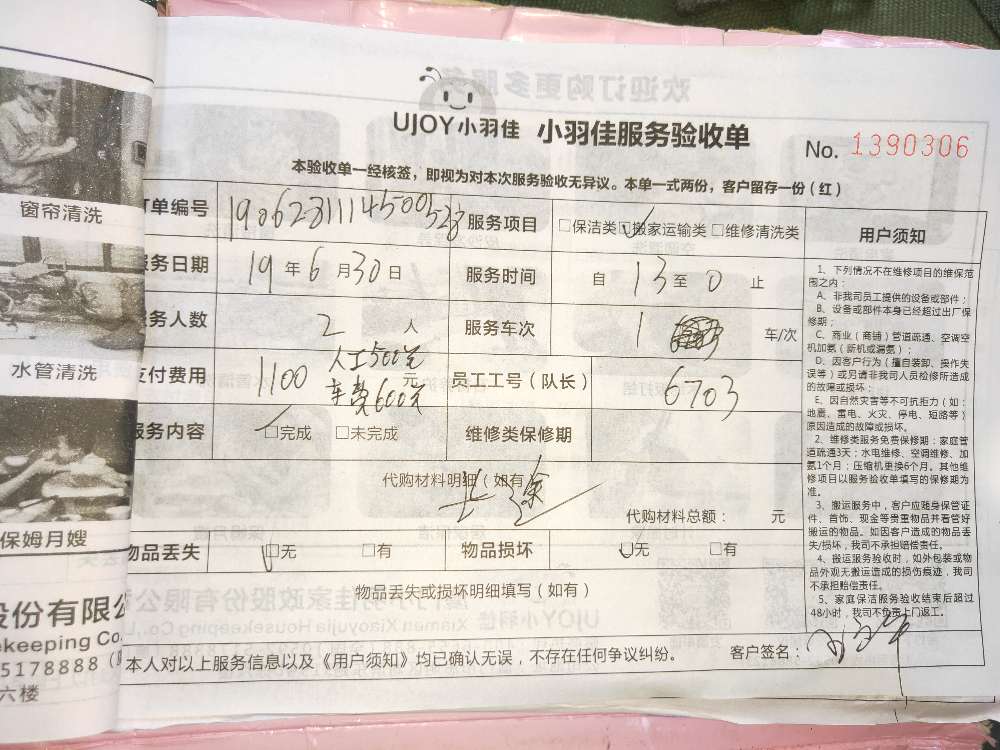 窗帘清洗
水管清洗
保姆月嫂
股份有限公
ekeeping Co.
5178888
六楼
UJOY小羽佳 小羽佳服务验收单
No. 1390306
本验收单一经核签，即视为对本次服务验收无异议。本单一式两份，客户留存一份（红）
订单编号 190628111450052 服务项目 □保洁类 □搬家运输类 □维修清洗类
服务日期 19年6月30日 服务时间 自13至0止
服务人数 2人 服务车次 1 车/次
支付费用 1100 元 人工500元 车费600元 员工工号（队长） 6703
服务内容 □完成 □未完成 维修类保修期
代购材料明细（如有
长途
代购材料总额： 元
物品丢失 □无 □有 物品损坏 □无 □有
物品丢失或损坏明细填写（如有）
本人对以上服务信息以及《用户须知》均已确认无误，不存在任何争议纠纷。 客户签名：
用户须知
1、下列情况不在维修项目的维保范
围之内：
A、非我司员工提供的设备或部件；
B、设备或部件本身已经超过出厂保
修期；
C、商业（商铺）管道疏通、空调空
机加氨（新机或漏氨）；
D、因客户行为（擅自装卸、操作失
误等）或另请非我司人员检修所造成
的故障或损坏；
E、因自然灾害等不可抗拒力（如：
地震、雷电、火灾、停电、短路等）
原因造成的故障或损坏。
2、维修类服务免费保修期：家庭管
道疏通3天；水电维修、空调维修、加
氨1个月；压缩机更换6个月。其他维
修项目以服务验收单填写的保修期为
准。
3、搬运服务中，客户应随身保管证
件、首饰、现金等贵重物品并看管好
搬运的物品。如因客户造成的物品丢
失/损坏，我司不承担赔偿责任。
4、搬运服务验收时，如外包装或物
品外观无搬运造成的损伤痕迹，我司
不承担赔偿责任。
5、家庭保洁服务验收结束后超过
48小时，我司不负责上门返工。